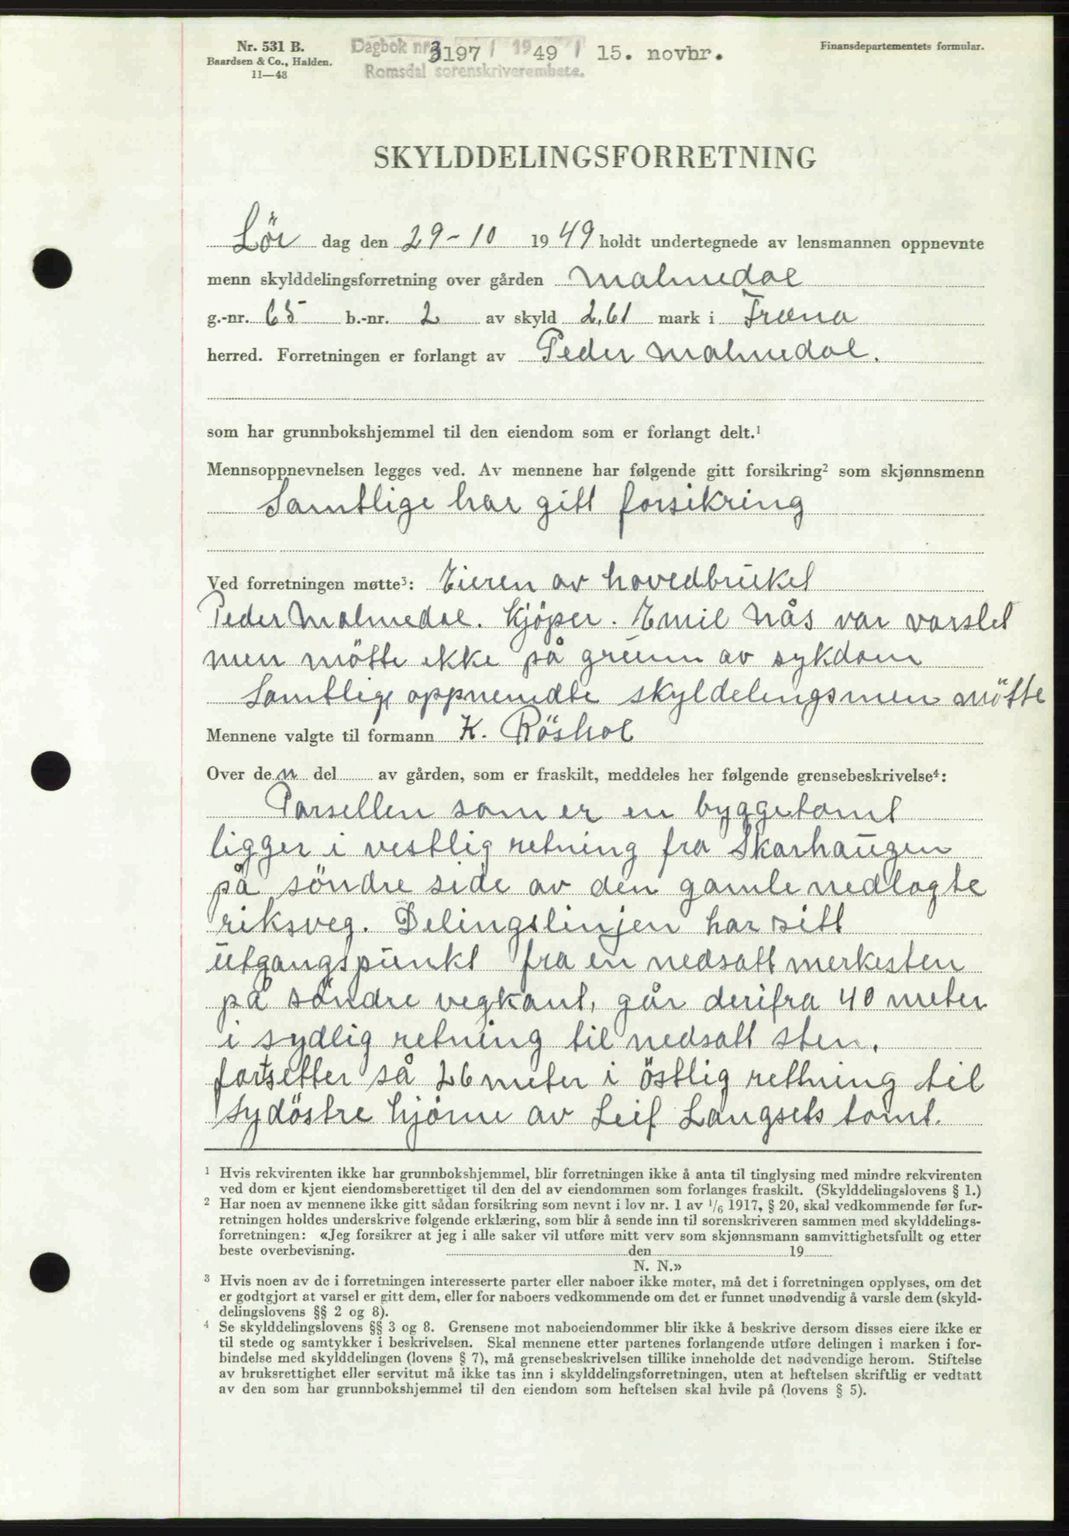 Nr. 531 B.
Baardsen & Co., Halden.
11—48
Dagbok nr. 3197 / 1949 / 15. novbr.
Romsdal sorenskriverembete.
Finansdepartementets formular.
SKYLDDELINGSFORRETNING
Lör dag den 29-10 1949 holdt undertegnede av lensmannen oppnevnte
menn skylddelingsforretning over gården Malmedal
g.-nr. 65 b.-nr. 2 av skyld 2,61 mark i Fræna
herred. Forretningen er forlangt av Peder Malmedal.
som har grunnbokshjemmel til den eiendom som er forlangt delt.¹
Mennsoppnevnelsen legges ved. Av mennene har følgende gitt forsikring² som skjønnsmenn
Samtlige har gitt forsikring
Ved forretningen møtte³: Eieren av hovedbruket
Peder Malmedal. Kjöper. Emil Nås var varslet
men mötte ikke på grunn av sykdom
Samtlige oppnemdte skyldelingsmen mötte
Mennene valgte til formann K. Röshol
Over den del av gården, som er fraskilt, meddeles her følgende grensebeskrivelse⁴:
Parsellen som er en byggetomt
ligger i vestlig retning fra Skarhaugen
på söndre side av den gamle nedlagte
riksveg. Delingslinjen har sitt
utgangspunkt fra en nedsatt merkesten
på söndre vegkant, går derifra 40 meter
i sydlig retning til nedsatt sten.
fortsetter så 26 meter i östlig rettning til
sydöstre hjörne av Leif Langsets tomt.
¹ Hvis rekvirenten ikke har grunnbokshjemmel, blir forretningen ikke å anta til tinglysing med mindre rekvirenten
ved dom er kjent eiendomsberettiget til den del av eiendommen som forlanges fraskilt. (Skylddelingslovens § 1.)
² Har noen av mennene ikke gitt sådan forsikring som nevnt i lov nr. 1 av ¹/₆ 1917, § 20, skal vedkommende før for-
retningen holdes underskrive følgende erklæring, som blir å sende inn til sorenskriveren sammen med skylddelings-
forretningen: «Jeg forsikrer at jeg i alle saker vil utføre mitt verv som skjønnsmann samvittighetsfullt og etter
beste overbevisning. den 19
N. N.»
³ Hvis noen av de i forretningen interesserte parter eller naboer ikke møter, må det i forretningen opplyses, om det
er godtgjort at varsel er gitt dem, eller for naboers vedkommende om det er funnet unødvendig å varsle dem (skyld-
delingslovens §§ 2 og 8).
⁴ Se skylddelingslovens §§ 3 og 8. Grensene mot naboeiendommer blir ikke å beskrive dersom disses eiere ikke er
til stede og samtykker i beskrivelsen. Skal mennene etter partenes forlangende utføre delingen i marken i for-
bindelse med skylddelingen (lovens § 7), må grensebeskrivelsen tillike inneholde det nødvendige herom. Stiftelse
av bruksrettighet eller servitut må ikke tas inn i skylddelingsforretningen, uten at heftelsen skriftlig er vedtatt
av den som har grunnbokshjemmel til den eiendom som heftelsen skal hvile på (lovens § 5).